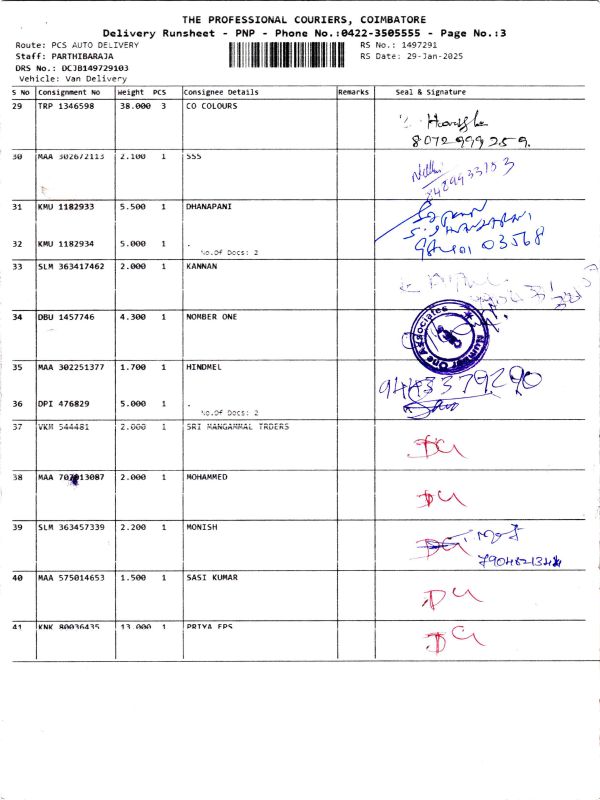 THE PROFESSIONAL COURIERS, COIMBATORE
Delivery Runsheet - PNP - Phone No.:0422-3505555 - Page No.:3
Route: PCS AUTO DELIVERY RS No.: 1497291
Staff: PARTHIBARAJA RS Date: 29-Jan-2025
DRS No.: DCJB149729103
Vehicle: Van Delivery
S No Consignment No Weight PCS Consignee Details Remarks Seal & Signature
29 TRP 1346598 38.000 3 CO COLOURS
8072999259.
30 MAA 302672113 2.100 1 SSS
8429933153
31 KMU 1182933 5.500 1 DHANAPANI
32 KMU 1182934 5.000 1 .
No.Of Docs: 2
03568
33 SLM 363417462 2.000 1 KANNAN
34 DBU 1457746 4.300 1 NOMBER ONE
Number One Associates
35 MAA 302251377 1.700 1 HINDMEL
9443379290
36 DPI 476829 5.000 1 .
No.Of Docs: 2
37 VKM 544481 2.000 1 SRI MANGAMMAL TRDERS
38 MAA 707013087 2.000 1 MOHAMMED
39 SLM 363457339 2.200 1 MONISH
40 MAA 575014653 1.500 1 SASI KUMAR
41 KNK 80036435 13.000 1 PRIYA EPS